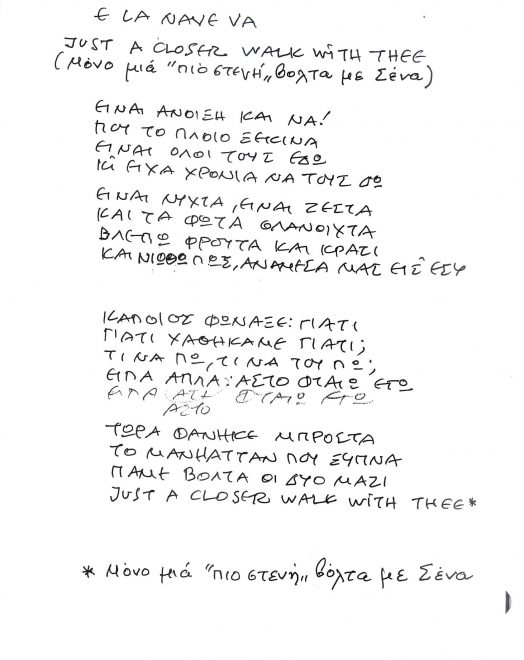 E LA NAVE VA
JUST A CLOSER WALK WITH THEE
(Μόνο μιά "πιο στενή" βόλτα με Σένα)
ΕΙΝΑΙ ΑΝΟΙΞΗ ΚΑΙ ΝΑ!
ΠΟΥ ΤΟ ΠΛΟΙΟ ΞΕΚΙΝΑ
ΕΙΝΑΙ ΟΛΟΙ ΤΟΥΣ ΕΔΩ
ΚΙ ΕΙΧΑ ΧΡΟΝΙΑ ΝΑ ΤΟΥΣ ΔΩ
ΕΙΝΑΙ ΝΥΧΤΑ, ΕΙΝΑΙ ΖΕΣΤΑ
ΚΑΙ ΤΑ ΦΩΤΑ ΟΛΑΝΟΙΧΤΑ
ΒΛΕΠΩ ΦΡΟΥΤΑ ΚΑΙ ΚΡΑΣΙ
ΚΑΙ ΝΙΩΘΩ ΠΩΣ, ΑΝΑΜΕΣΑ ΜΑΣ ΕΙΣ' ΕΣΥ
ΚΑΠΟΙΟΣ ΦΩΝΑΞΕ: ΓΙΑΤΙ
ΓΙΑΤΙ ΧΑΘΗΚΑΜΕ ΓΙΑΤΙ;
ΤΙ ΝΑ ΠΩ, ΤΙ ΝΑ ΤΟΥ ΠΩ;
ΕΙΠΑ ΑΠΛΑ: ΑΣΤΟ ΦΤΑΙΩ ΕΓΩ
ΕΙΠΑ ΦΤΑΙΩ ΕΓΩ
ΑΣΤΟ
ΤΩΡΑ ΦΑΝΗΚΕ ΜΠΡΟΣΤΑ
ΤΟ ΜΑΝΗΑΤΤΑΝ ΠΟΥ ΞΥΠΝΑ
ΠΑΜΕ ΒΟΛΤΑ ΟΙ ΔΥΟ ΜΑΖΙ
JUST A CLOSER WALK WITH THEE*
* Μόνο μιά "πιο στενή" βόλτα με Σένα